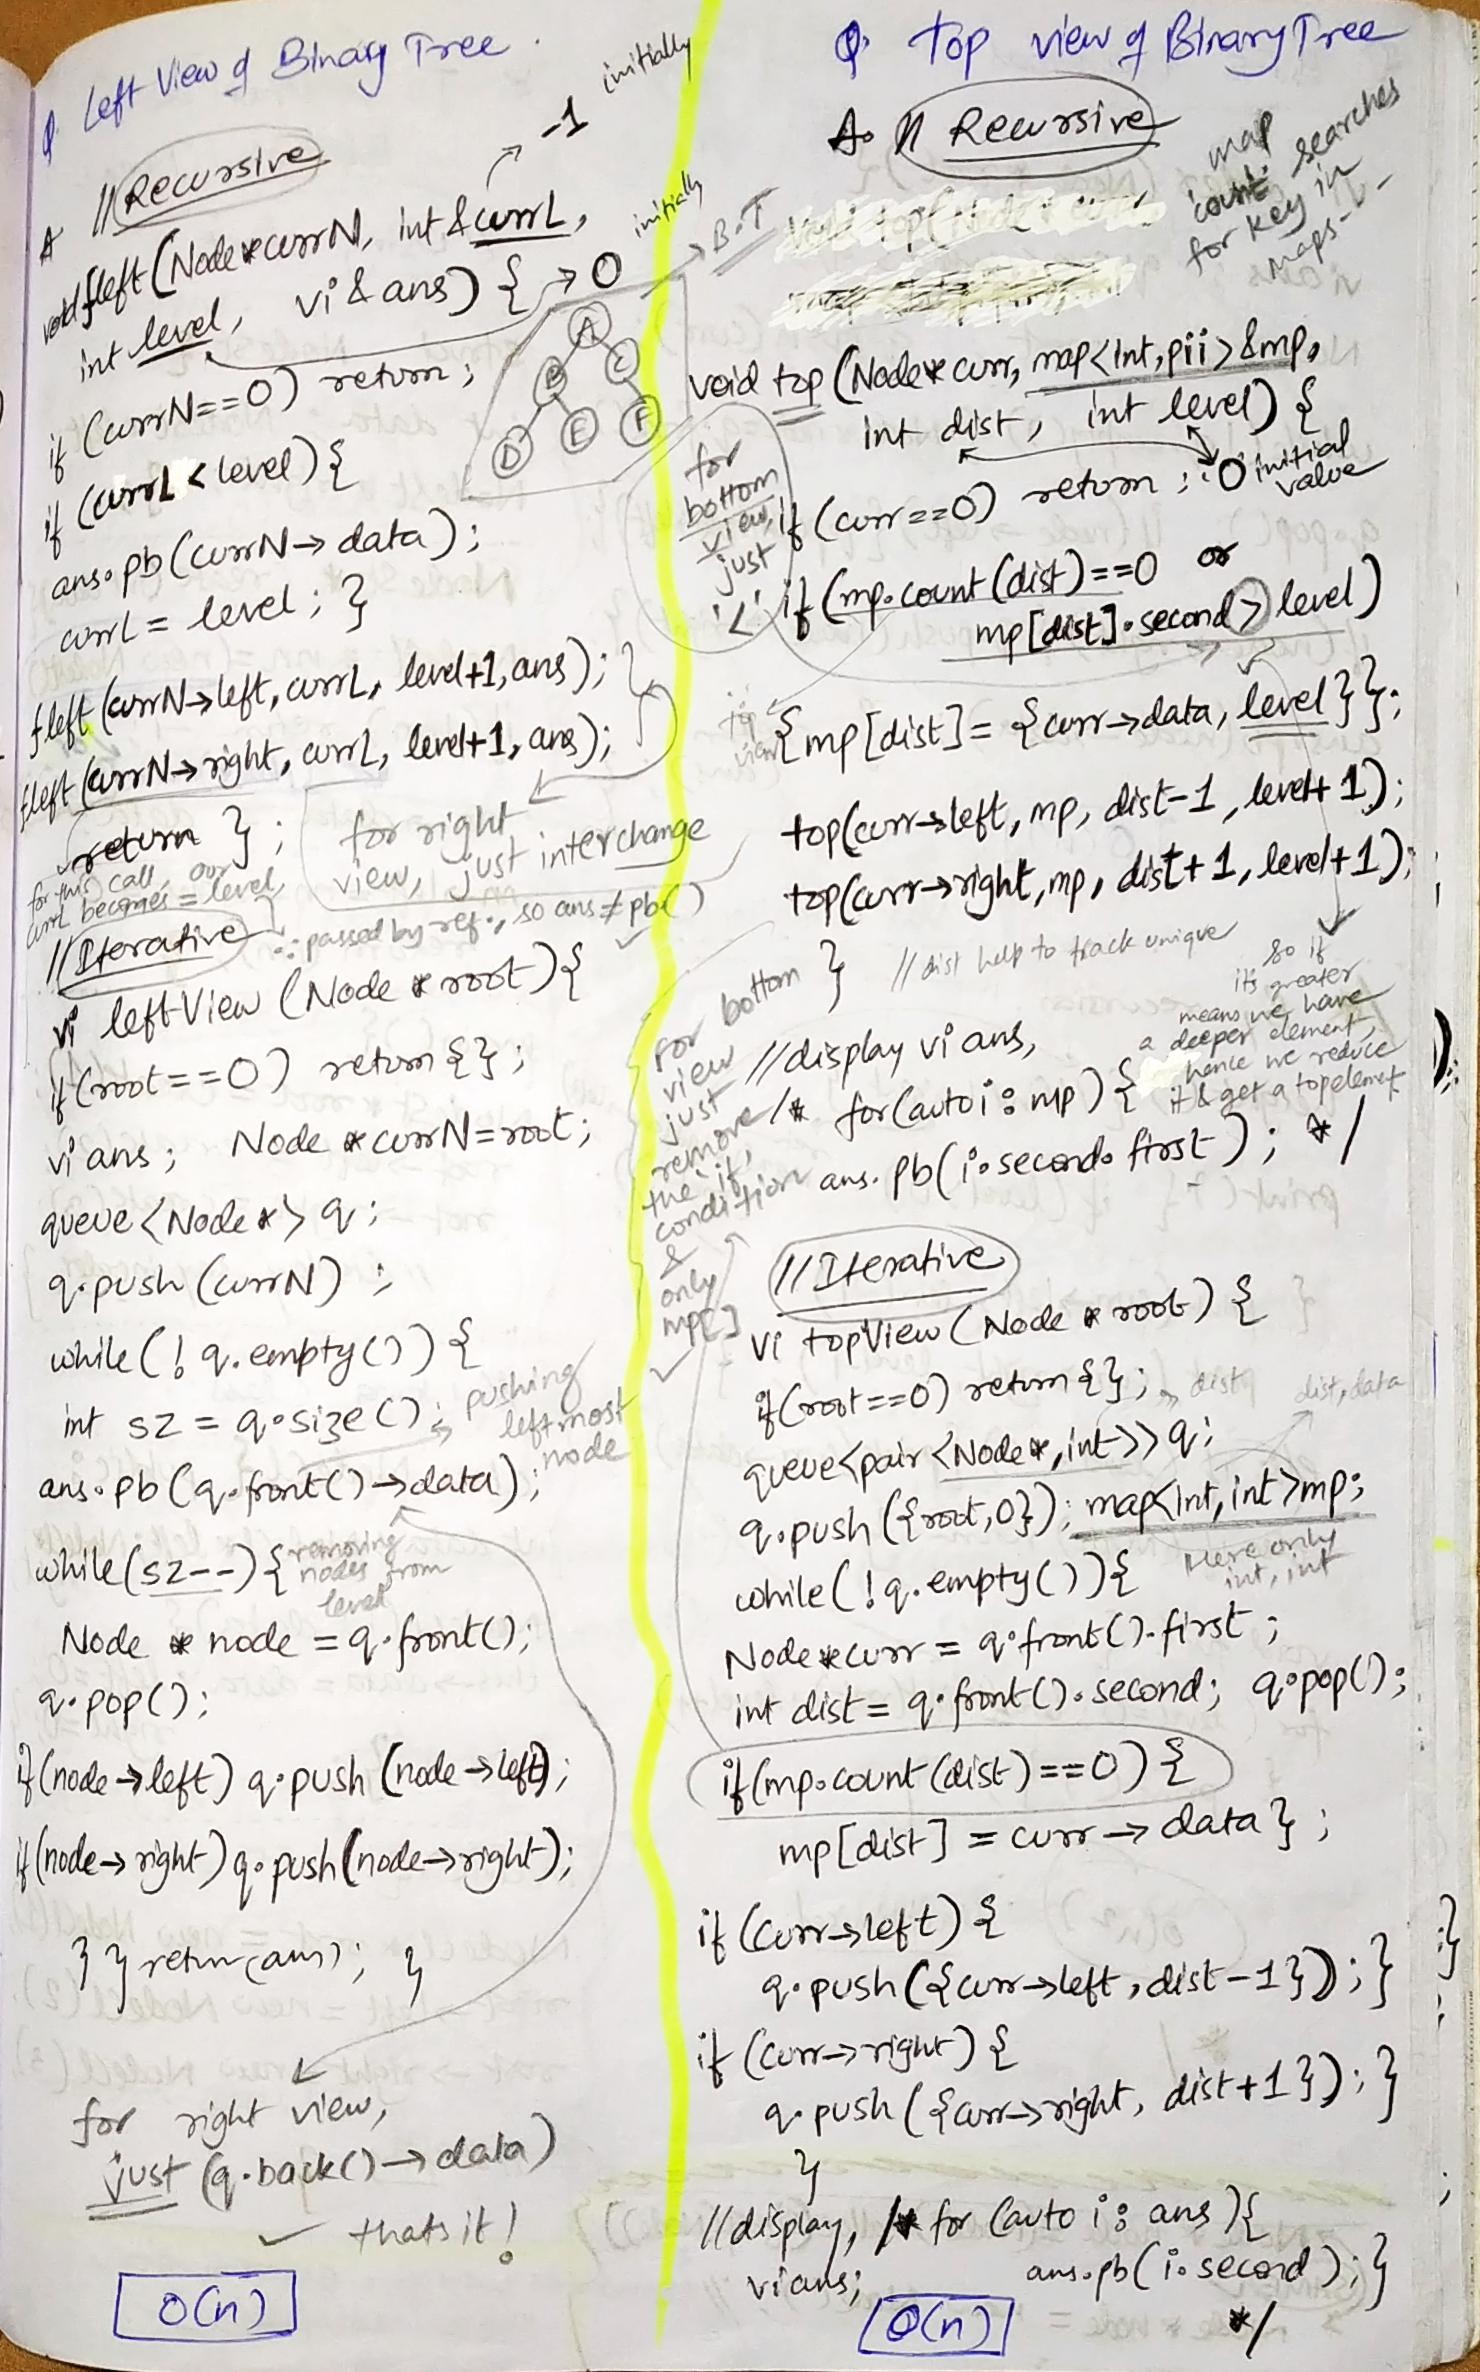 Q. Left View of Binary Tree.
A //Recursive
-1 initially
void fleft(Node*currN, int &currL,
int level, vi & ans) { → 0 initially
B.T
A
B C
D E F
if (currN==0) return;
if (currL < level) {
ans.pb(currN→data);
currL = level; }
fleft(currN→left, currL, level+1, ans);
fleft(currN→right, currL, level+1, ans);
return };
for right
view, just interchange
for this call, our
currL becomes = level,
∴ passed by ref., so ans ≠ pb()
//Iterative
vi leftView (Node * root) {
if (root==0) return {};
vi ans; Node *currN=root;
queue<Node*> q;
q.push(currN);
while(!q.empty()) {
int sz = q.size();
pushing
leftmost
node
ans.pb(q.front()→data);
while(sz--) {
removing
nodes from
level
Node * node = q.front();
q.pop();
if(node→left) q.push(node→left);
if(node→right) q.push(node→right);
} } return(ans); }
for right view,
just (q.back()→data)
✓ thats it!
O(n)
Q. Top view of Binary Tree
A. // Recursive
map
count: searches
for key in
maps
void top (Node* curr, map<int,pii> &mp,
int dist, int level) {
0 initial
value
if (curr==0) return;
for
bottom
view,
just
'<'
if (mp.count(dist)==0 or
mp[dist].second > level)
top
view
{mp[dist] = {curr→data, level}};
top(curr→left, mp, dist-1, level+1);
top(curr→right, mp, dist+1, level+1);
} //dist help to track unique
so if
its greater
means we have
a deeper element,
hence we reduce
it & get a top element
//display vi ans,
/* for(auto i: mp) {
ans.pb(i.second.first); */
for bottom
view
just
remove
the 'if'
condition
&
only
mp[]
//Iterative
vi topView (Node * root) {
if(root==0) return {};
dist
dist, data
queue<pair<Node*,int>> q;
q.push({root,0}); map<int,int>mp;
Here only
int, int
while(!q.empty()){
Node*curr = q.front().first;
int dist = q.front().second; q.pop();
if(mp.count(dist)==0) {
mp[dist] = curr→data };
if (curr→left) {
q.push({curr→left, dist-1}); }
if (curr→right) {
q.push({curr→right, dist+1}); }
}
//display, /* for (auto i: ans){
vi ans; ans.pb(i.second); }
*/
O(n)